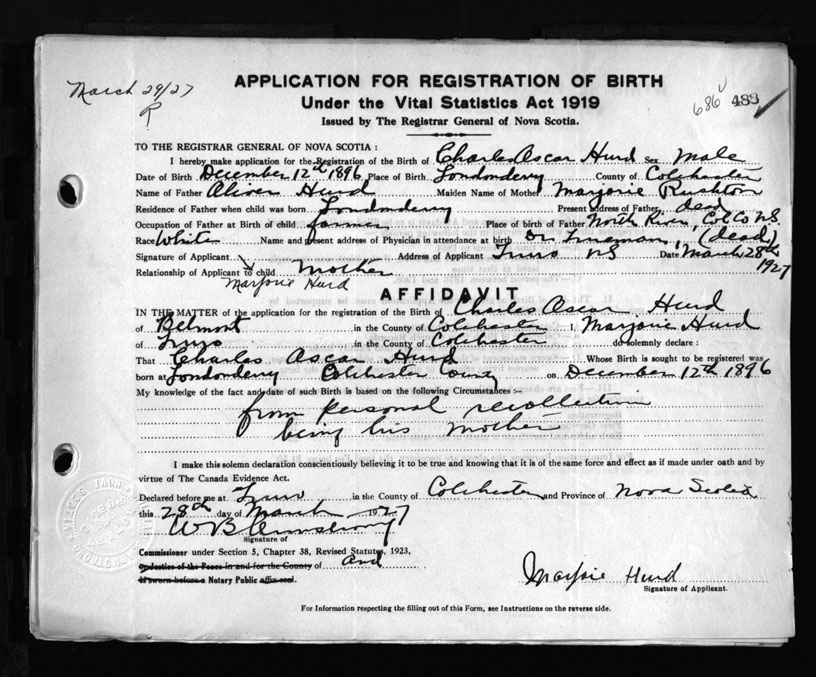 March 29/27
R
686 489
APPLICATION FOR REGISTRATION OF BIRTH
Under the Vital Statistics Act 1919
Issued by The Registrar General of Nova Scotia.
TO THE REGISTRAR GENERAL OF NOVA SCOTIA :
I hereby make application for the Registration of the Birth of Charles Ascar Hurd Sex Male
Date of Birth December 12th 1896 Place of Birth Londonderry County of Colchester
Name of Father Oliver Hurd Maiden Name of Mother Marjorie Rushton
Residence of Father when child was born Londonderry Present address of Father dead
Occupation of Father at Birth of child farmer Place of birth of Father North River, Col Co N.S.
Race White Name and present address of Physician in attendance at birth Dr. (dead)
Signature of Applicant Address of Applicant Truro NS Date March 28th 1927
Relationship of Applicant to child Mother
Marjorie Hurd
AFFIDAVIT
IN THE MATTER of the application for the registration of the Birth of Charles Ascar Hurd
of Belmont in the County of Colchester I, Marjorie Hurd
of Truro in the County of Colchester do solemnly declare :
That Charles Ascar Hurd Whose Birth is sought to be registered was
born at Londonderry Colchester County on December 12th 1896
My knowledge of the fact and date of such Birth is based on the following Circumstances :—
from personal recollection
being his mother
I make this solemn declaration conscientiously believing it to be true and knowing that it is of the same force and effect as if made under oath and by
virtue of The Canada Evidence Act.
Declared before me at Truro in the County of Colchester and Province of Nova Scotia
this 28th day of March 1927
W B Armstrong
Signature of
Commissioner under Section 5, Chapter 38, Revised Statutes, 1923,
Or Justice of the Peace in and for the County of and
If sworn before a Notary Public affix seal.
Marjorie Hurd
Signature of Applicant.
For Information respecting the filling out of this Form, see Instructions on the reverse side.